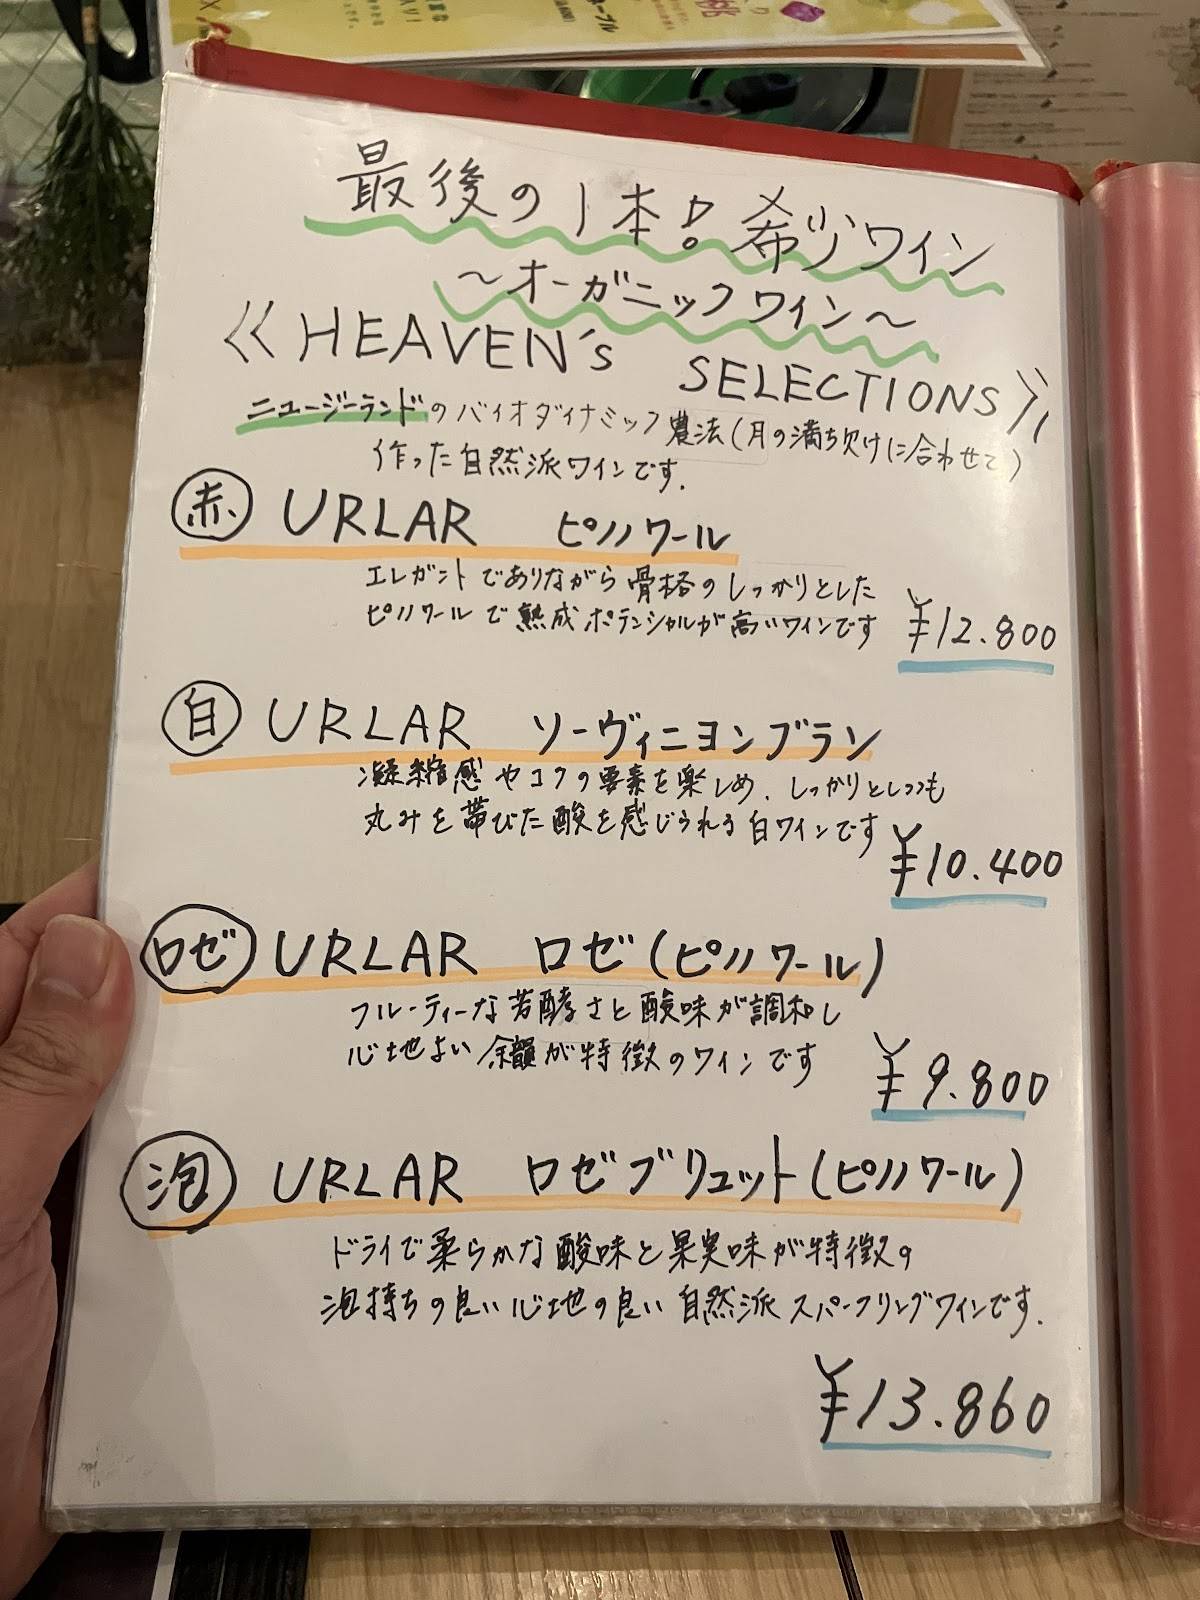 最後の1本!希少ワイン
～オーガニックワイン～
《HEAVEN's SELECTIONS》
ニュージーランドのバイオダイナミック農法(月の満ち欠けに合わせて)
作った自然派ワインです.
赤 URLAR ピノノワール
エレガントでありながら骨格のしっかりとした
ピノノワールで熟成ポテンシャルが高いワインです
¥12.800
白 URLAR ソーヴィニヨンブラン
凝縮感やコクの要素を楽しめ、しっかりとしつつも
丸みを帯びた酸を感じられる白ワインです
¥10.400
ロゼ URLAR ロゼ(ピノノワール)
フルーティーな芳酵さと酸味が調和し
心地よい余韻が特徴のワインです
¥9.800
泡 URLAR ロゼブリュット(ピノノワール)
ドライで柔らかな酸味と果実味が特徴の
泡持ちの良い心地の良い自然派スパークリングワインです.
¥13.860